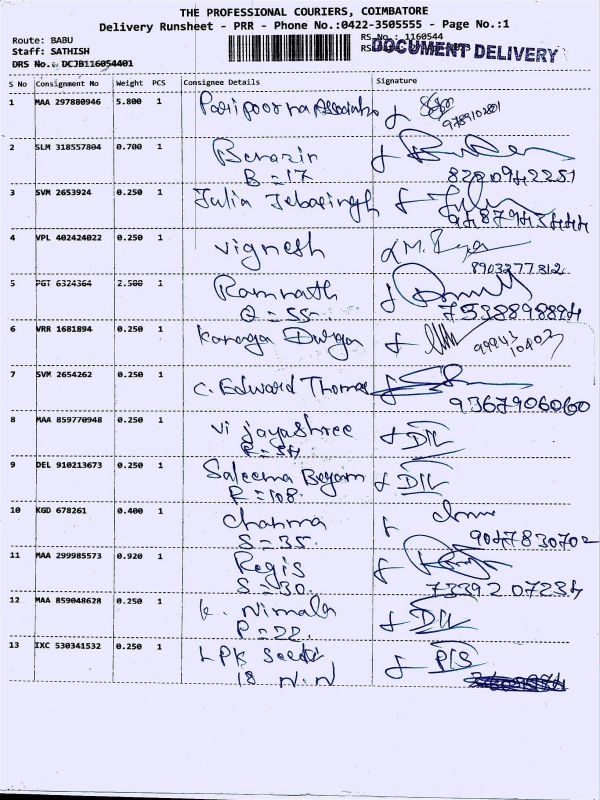 THE PROFESSIONAL COURIERS, COIMBATORE
Delivery Runsheet - PRR - Phone No.:0422-3505555 - Page No.:1
Route: BABU
Staff: SATHISH
DRS No.: DCJB116054401
RS No.: 1160544
DOCUMENT DELIVERY
S No Consignment No Weight PCS Consignee Details Signature
1 MAA 297880946 5.800 1
9789102801
2 SLM 318557804 0.700 1 Benazir
B = 17 8220942251
3 SVM 2653924 0.250 1 Julia Jebasingh
9487943444
4 VPL 402424022 0.250 1 Vignesh
8903277312
5 PGT 6324364 2.500 1 Ramnath
Q = 55. 7538898894
6 VRR 1681894 0.250 1 Kanaga Durga
99943 10403
7 SVM 2654262 0.250 1 C. Edward Thomas
9367906060
8 MAA 859770948 0.250 1 Vijayashree D/L
R = 54
9 DEL 910213673 0.250 1 Saleema Begam D/L
R = 108.
10 KGD 678261 0.400 1
S = 35. 9047830702
11 MAA 299985573 0.920 1 Regis
S = 30. 7339207234
12 MAA 859048628 0.250 1 K. Nirmala D/L
P = 22.
13 IXC 530341532 0.250 1 LPK
18 N.N